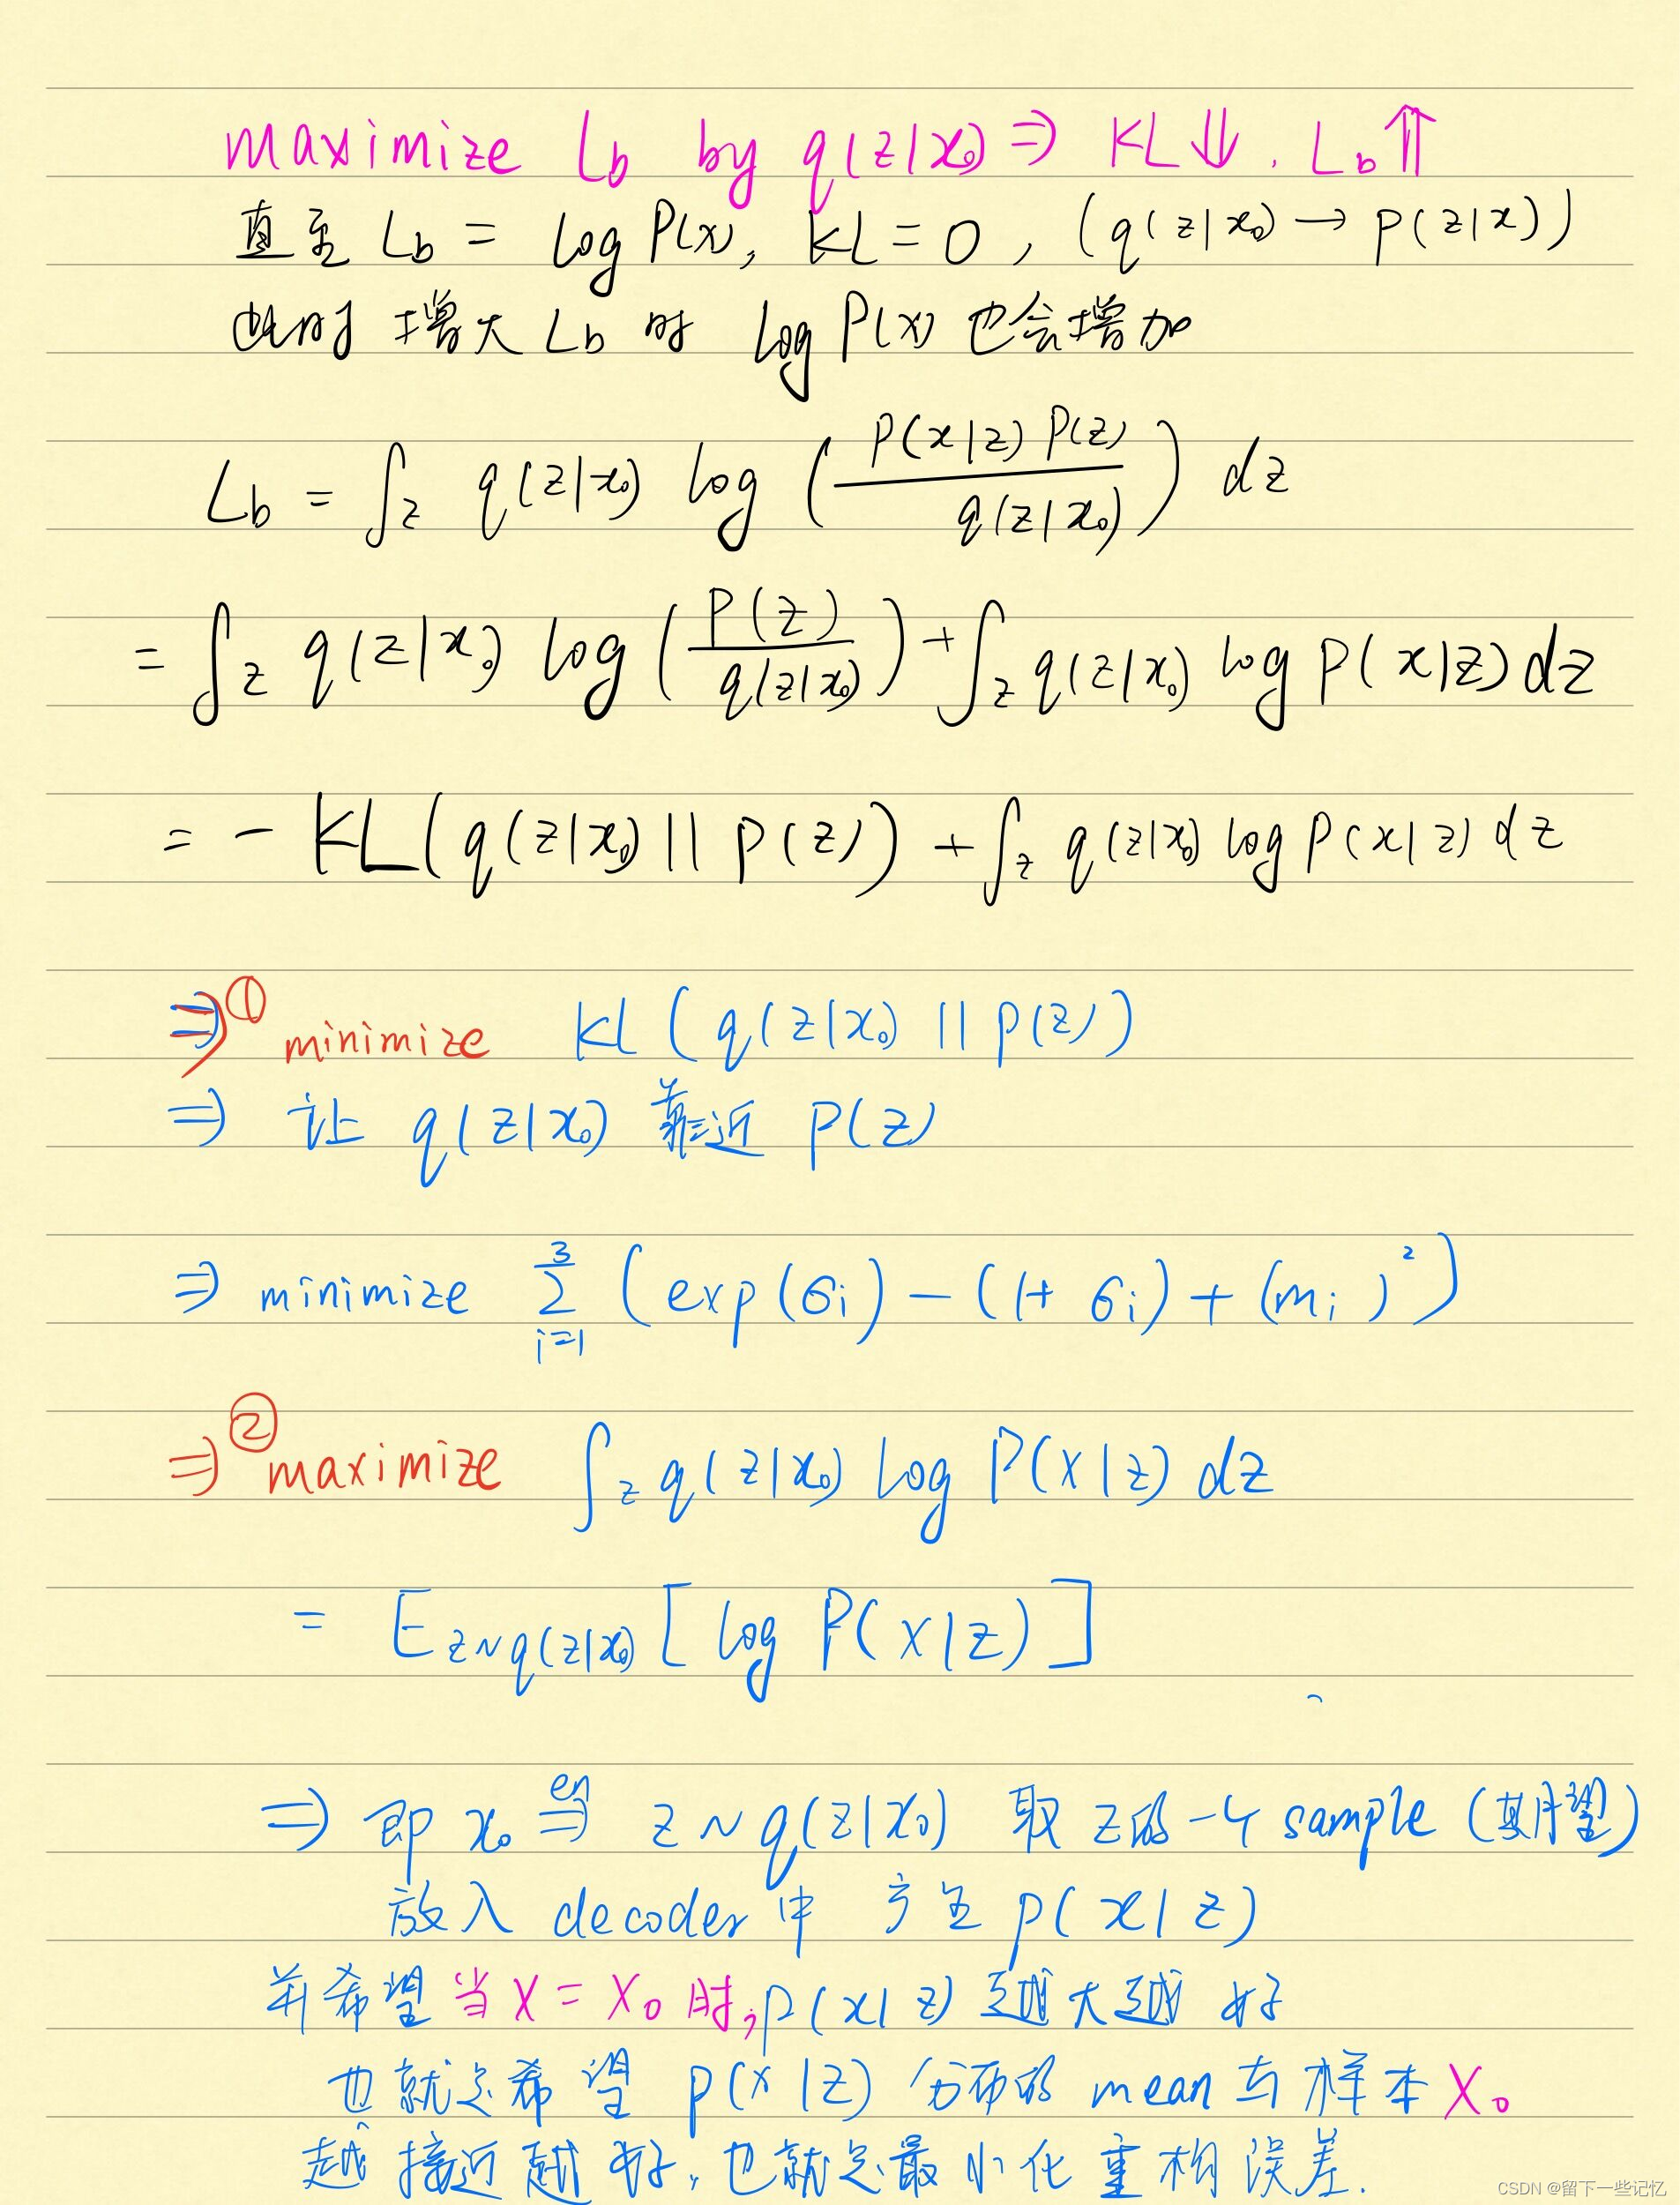 maximize Lb by q(z|x₀) ⇒ KL⇓. Lb⇑
直至 Lb = log P(x), KL = 0, (q(z|x₀) → p(z|x))
此时 增大 Lb 时 log P(x) 也会增加
Lb = ∫z q(z|x₀) log (P(x|z) P(z) / q(z|x₀)) dz
= ∫z q(z|x₀) log (P(z) / q(z|x₀)) + ∫z q(z|x₀) log P(x|z) dz
= - KL(q(z|x₀) || p(z)) + ∫z q(z|x₀) log P(x|z) dz
⇒ ① minimize KL (q(z|x₀) || p(z))
⇒ 让 q(z|x₀) 靠近 P(z)
⇒ minimize ∑ᵢ₌₁³ (exp(σᵢ) - (1+σᵢ) + (mᵢ)²)
⇒ ② maximize ∫z q(z|x₀) log P(x|z) dz
= E z~q(z|x₀) [log P(x|z)]
⇒ 即 x₀ ⇒en z ~ q(z|x₀) 取 z的一个 sample (期望)
放入 decoder 中 产生 p(x|z)
并希望 当 X = X₀ 时, p(x|z) 越大越好
也就是希望 p(x|z) 分布的 mean 与 样本 X₀
越接近越好, 也就是最小化重构误差.
CSDN @留下一些记忆